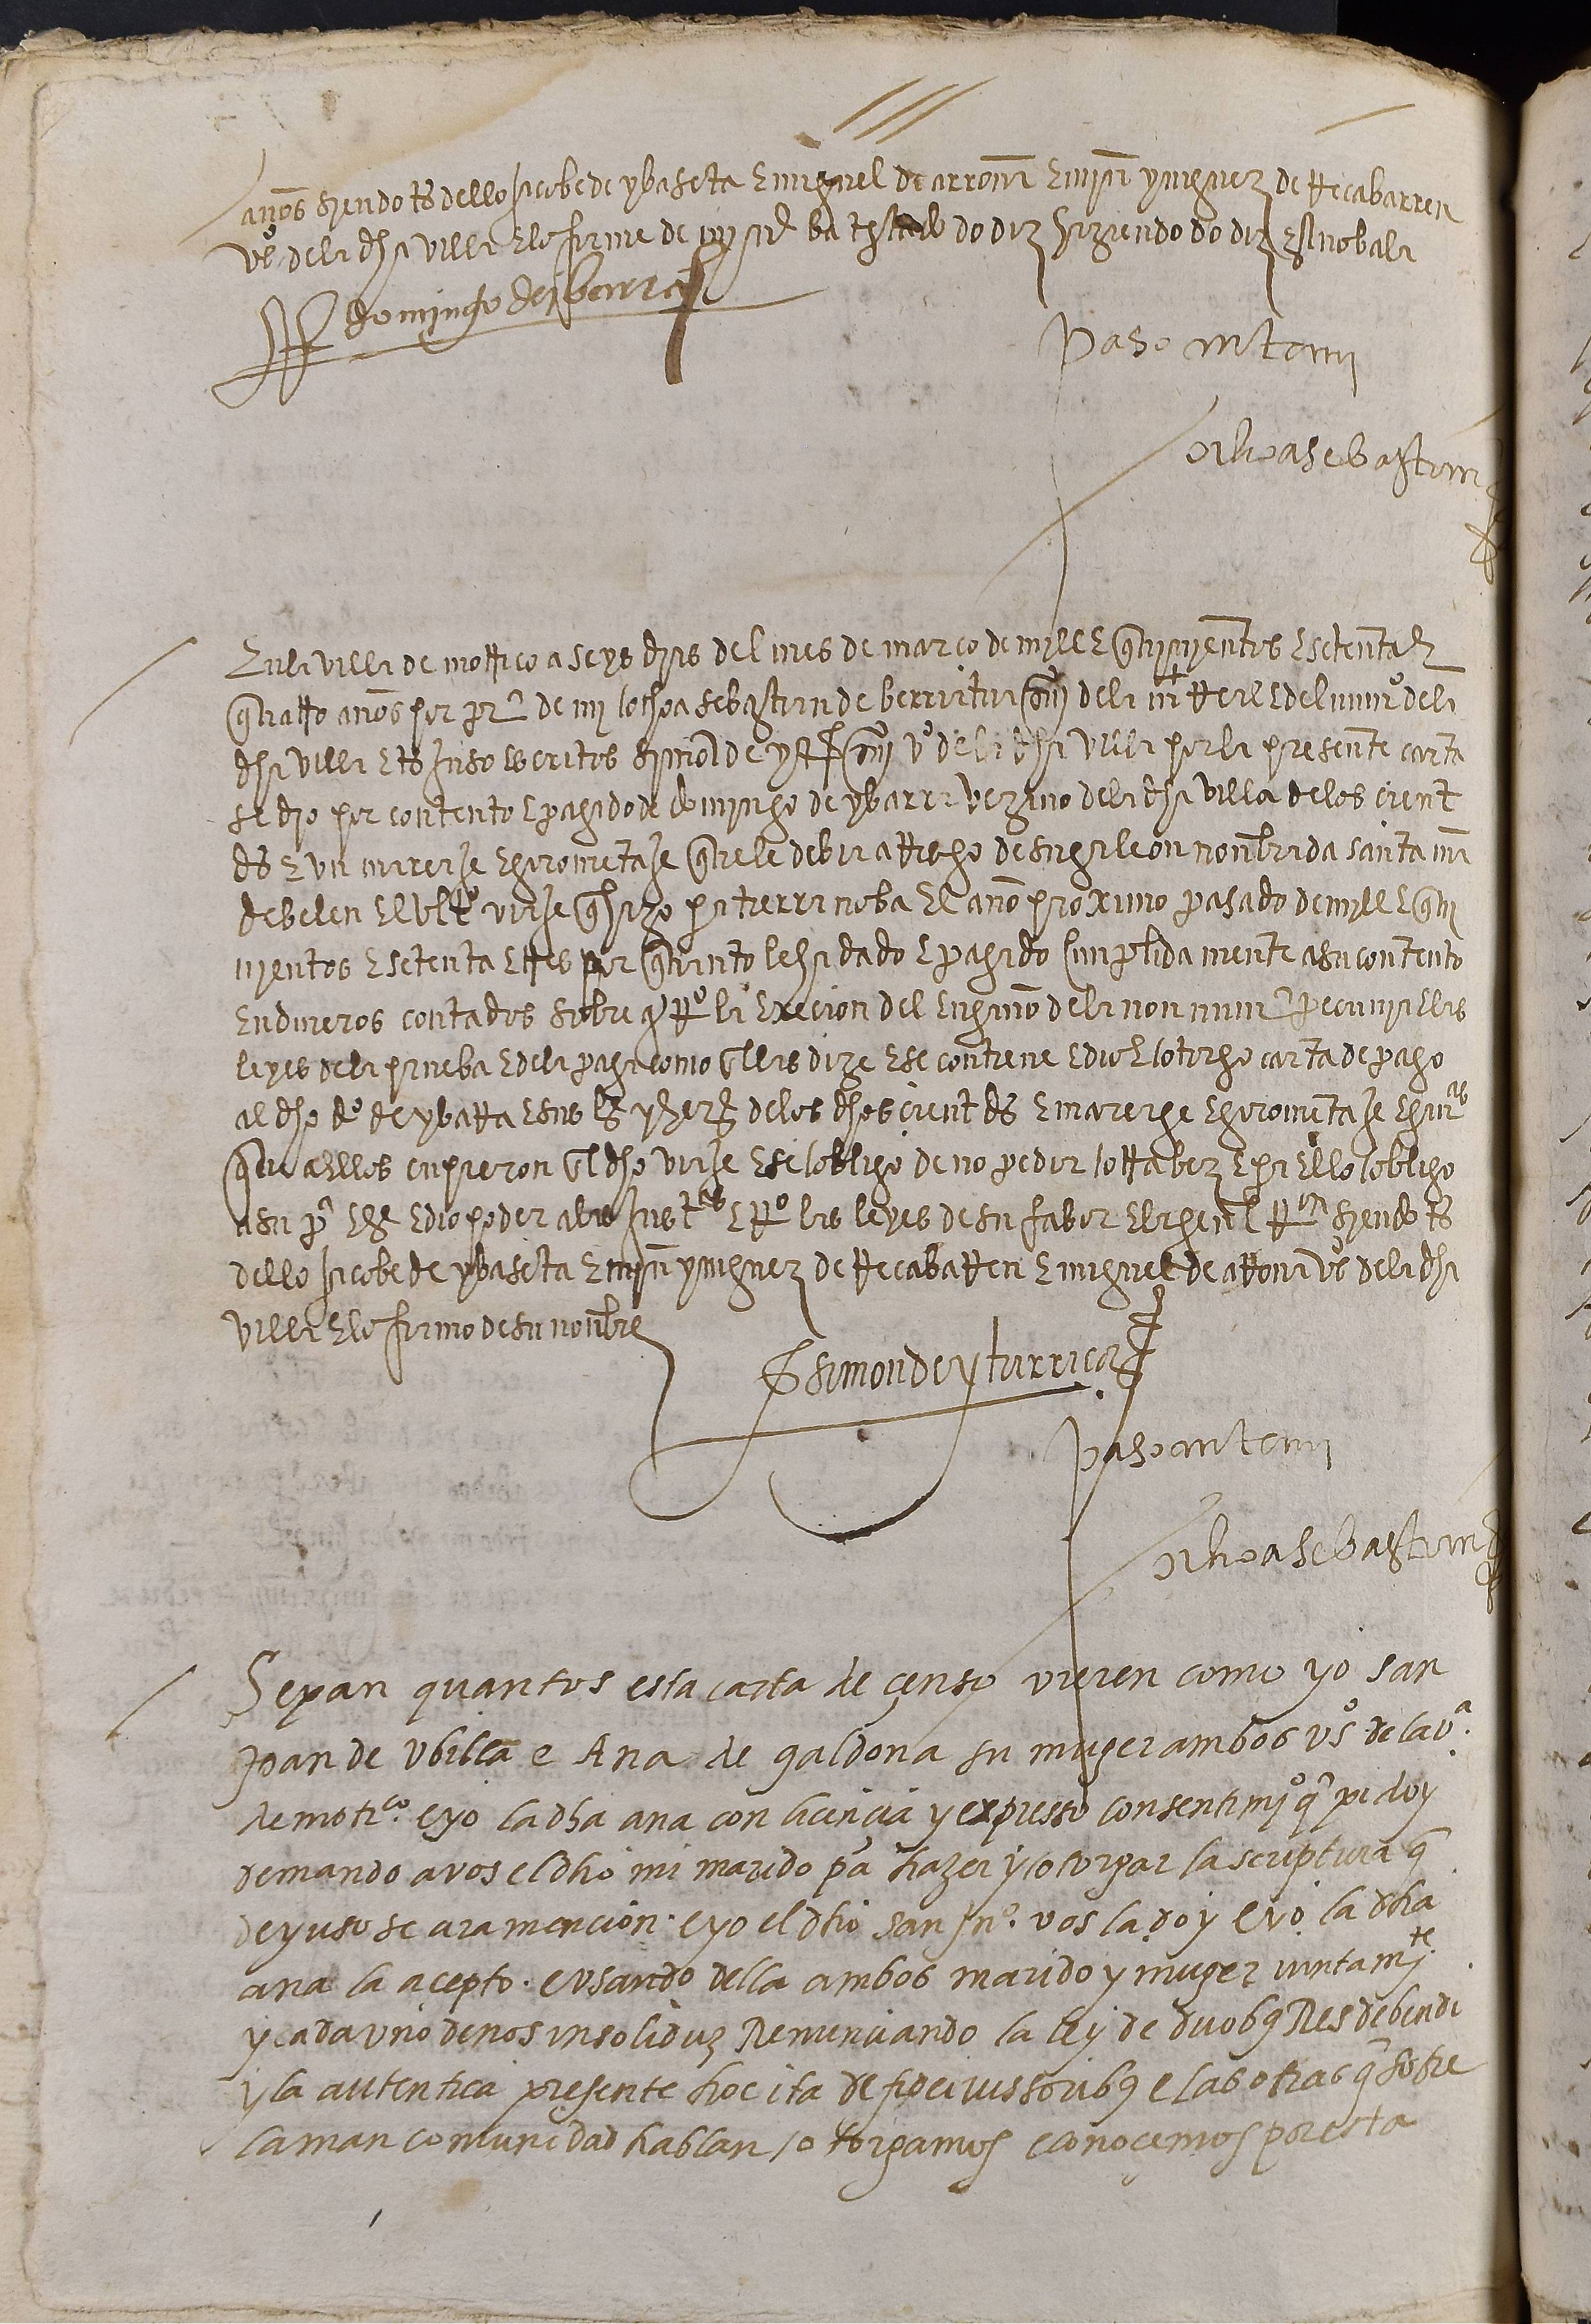 anos syendo ts dello jacobe de ybaseta e miguel de arrona e myn yniguez de Recabarren
vos dela dha villa e lo firme de my va testado do diz syziendo do diz
domingo de ybarra
Paso ante my
ochoa sebastian
En la villa de motrico a seys dias del mes de março de myll e quinyentos e setenta e
quatro anos por pra de my ochoa sebastian de berriatua sno de la mt Real e del numo dela
dha villa e ts ynso escritos symon de yt vo de la dha villa por la presente carta
se dio por contento e pagado de domyngo de ybarra vezino dela dha villa de los cient
ds e un mareaje e gurometaje que le debia a Riesgo de su galeon nonbrada santa ma
de belen el ulto viaje q hizo pa tierra noba el ano proximo pasado de myll e quin
nyentos e setenta e tres por quanto le ha dado e pagado cunplida mente a su contento
en dineros contados sobre q Ro la execion del engano dela non numa pecunya e las
leyes dela prueba e dela paga como en ellas dize e se contiene e dio e otorgo carta de pago
al dho do de ybarra e sus bs y hers delos dhos cient ds e mareage e gurometaje
que a ellos cupieron en el dho viaje e se obligo de no pedir otra bez e pa ello obligo
a su pa e bs e dio poder a las justas e Ro las leyes de su fabor e la general Ron syendo ts
dello jacobe de ybaseta e myn yniguez de Recabarren e miguel de arrona vos dela dha
villa e lo firmo de su nonbre
simon de yturriça
paso ante my
ochoa sebastian
Sepan quantos esta carta de çenso vieren como yo san
Joan de Vbilla e Ana de galdona su muger ambos vos de la va
de motrco eyo la dha ana con licencia y expresso consentimyo q pido y
demando a vos el dho mi marido pa hazer y otorgar la scriptura q
deyuso se ara mencion. eyo el dho san juo. vos la doy eyo la dha
ana la acepto. e vsando della ambos marido y muger iuntamyte
y cada vno de nos insolidum Renunciando la ley de duobus Res debendi
y la autentica presente hoc ita de fideiussoribus e las otras q sobre
la man comunidad hablan otorgamos e conocemos por esta